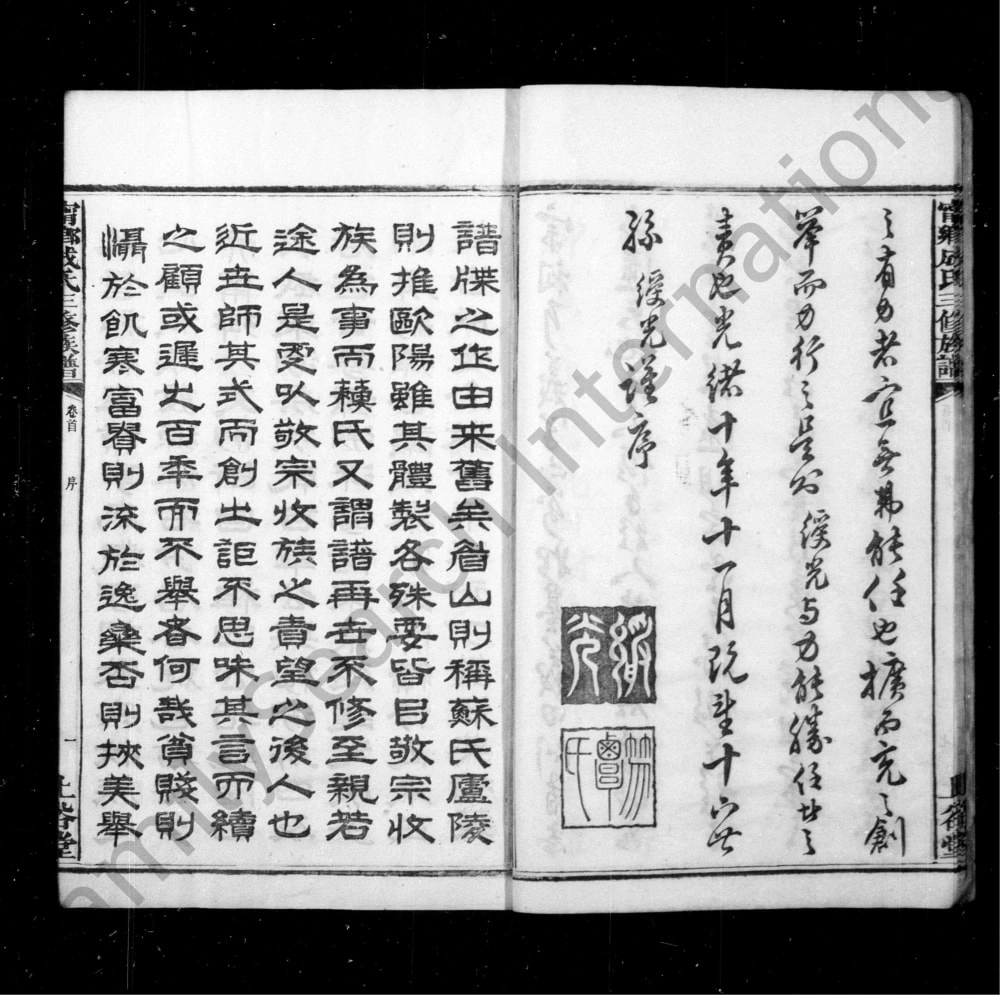 之有力者宜無弗能任也擴而充之創
舉而力行之是以綬光与力能勝任者之
責也光緒十年十一月既望十六世
孫綬光謹序
譜牒之作由來舊矣眉山則稱蘇氏廬陵
則推歐陽雖其體製各殊要皆㠯敬宗收
族為事而蘇氏又謂譜再世不修至親若
途人是更以敬宗收族之責望之後人也
近世師其式而創之詎不思味其言而續
之顧或遲之百年而不舉者何哉貧賤則
懾於飢寒富貴則流於逸樂否則挾美舉
寧鄉成氏三修族譜
卷首
序
一
寧鄉成氏三修族譜
FamilySearch International